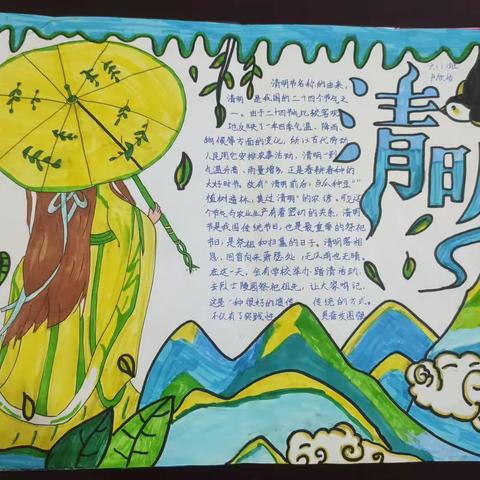 清明
清明节名称的由来,
清明是我国的二十四个节气之
一。由于二十四节气比较客观
地反映了一年四季气温、降雨、
物候等方面的变化,所以古代劳动
人民用它安排农事活动。清明一到,
气温升高,雨量增多,正是春耕春种的
大好时节。故有“清明前后,点瓜种豆”“
植树造林,莫过清明”的农谚。可见这
个节气与农业生产有着密切的关系。清明
节是我国传统节日,也是最重要的祭祀
节日,是祭祖和扫墓的日子。清明寄相
思,回首向来萧瑟处,无风雨也无晴。
在这一天,会有学校举办踏清活动,
去烈士陵园祭祀祖先,让大家明记,
这是一种很好的遗传 传统的方式。
不仅有了实践性